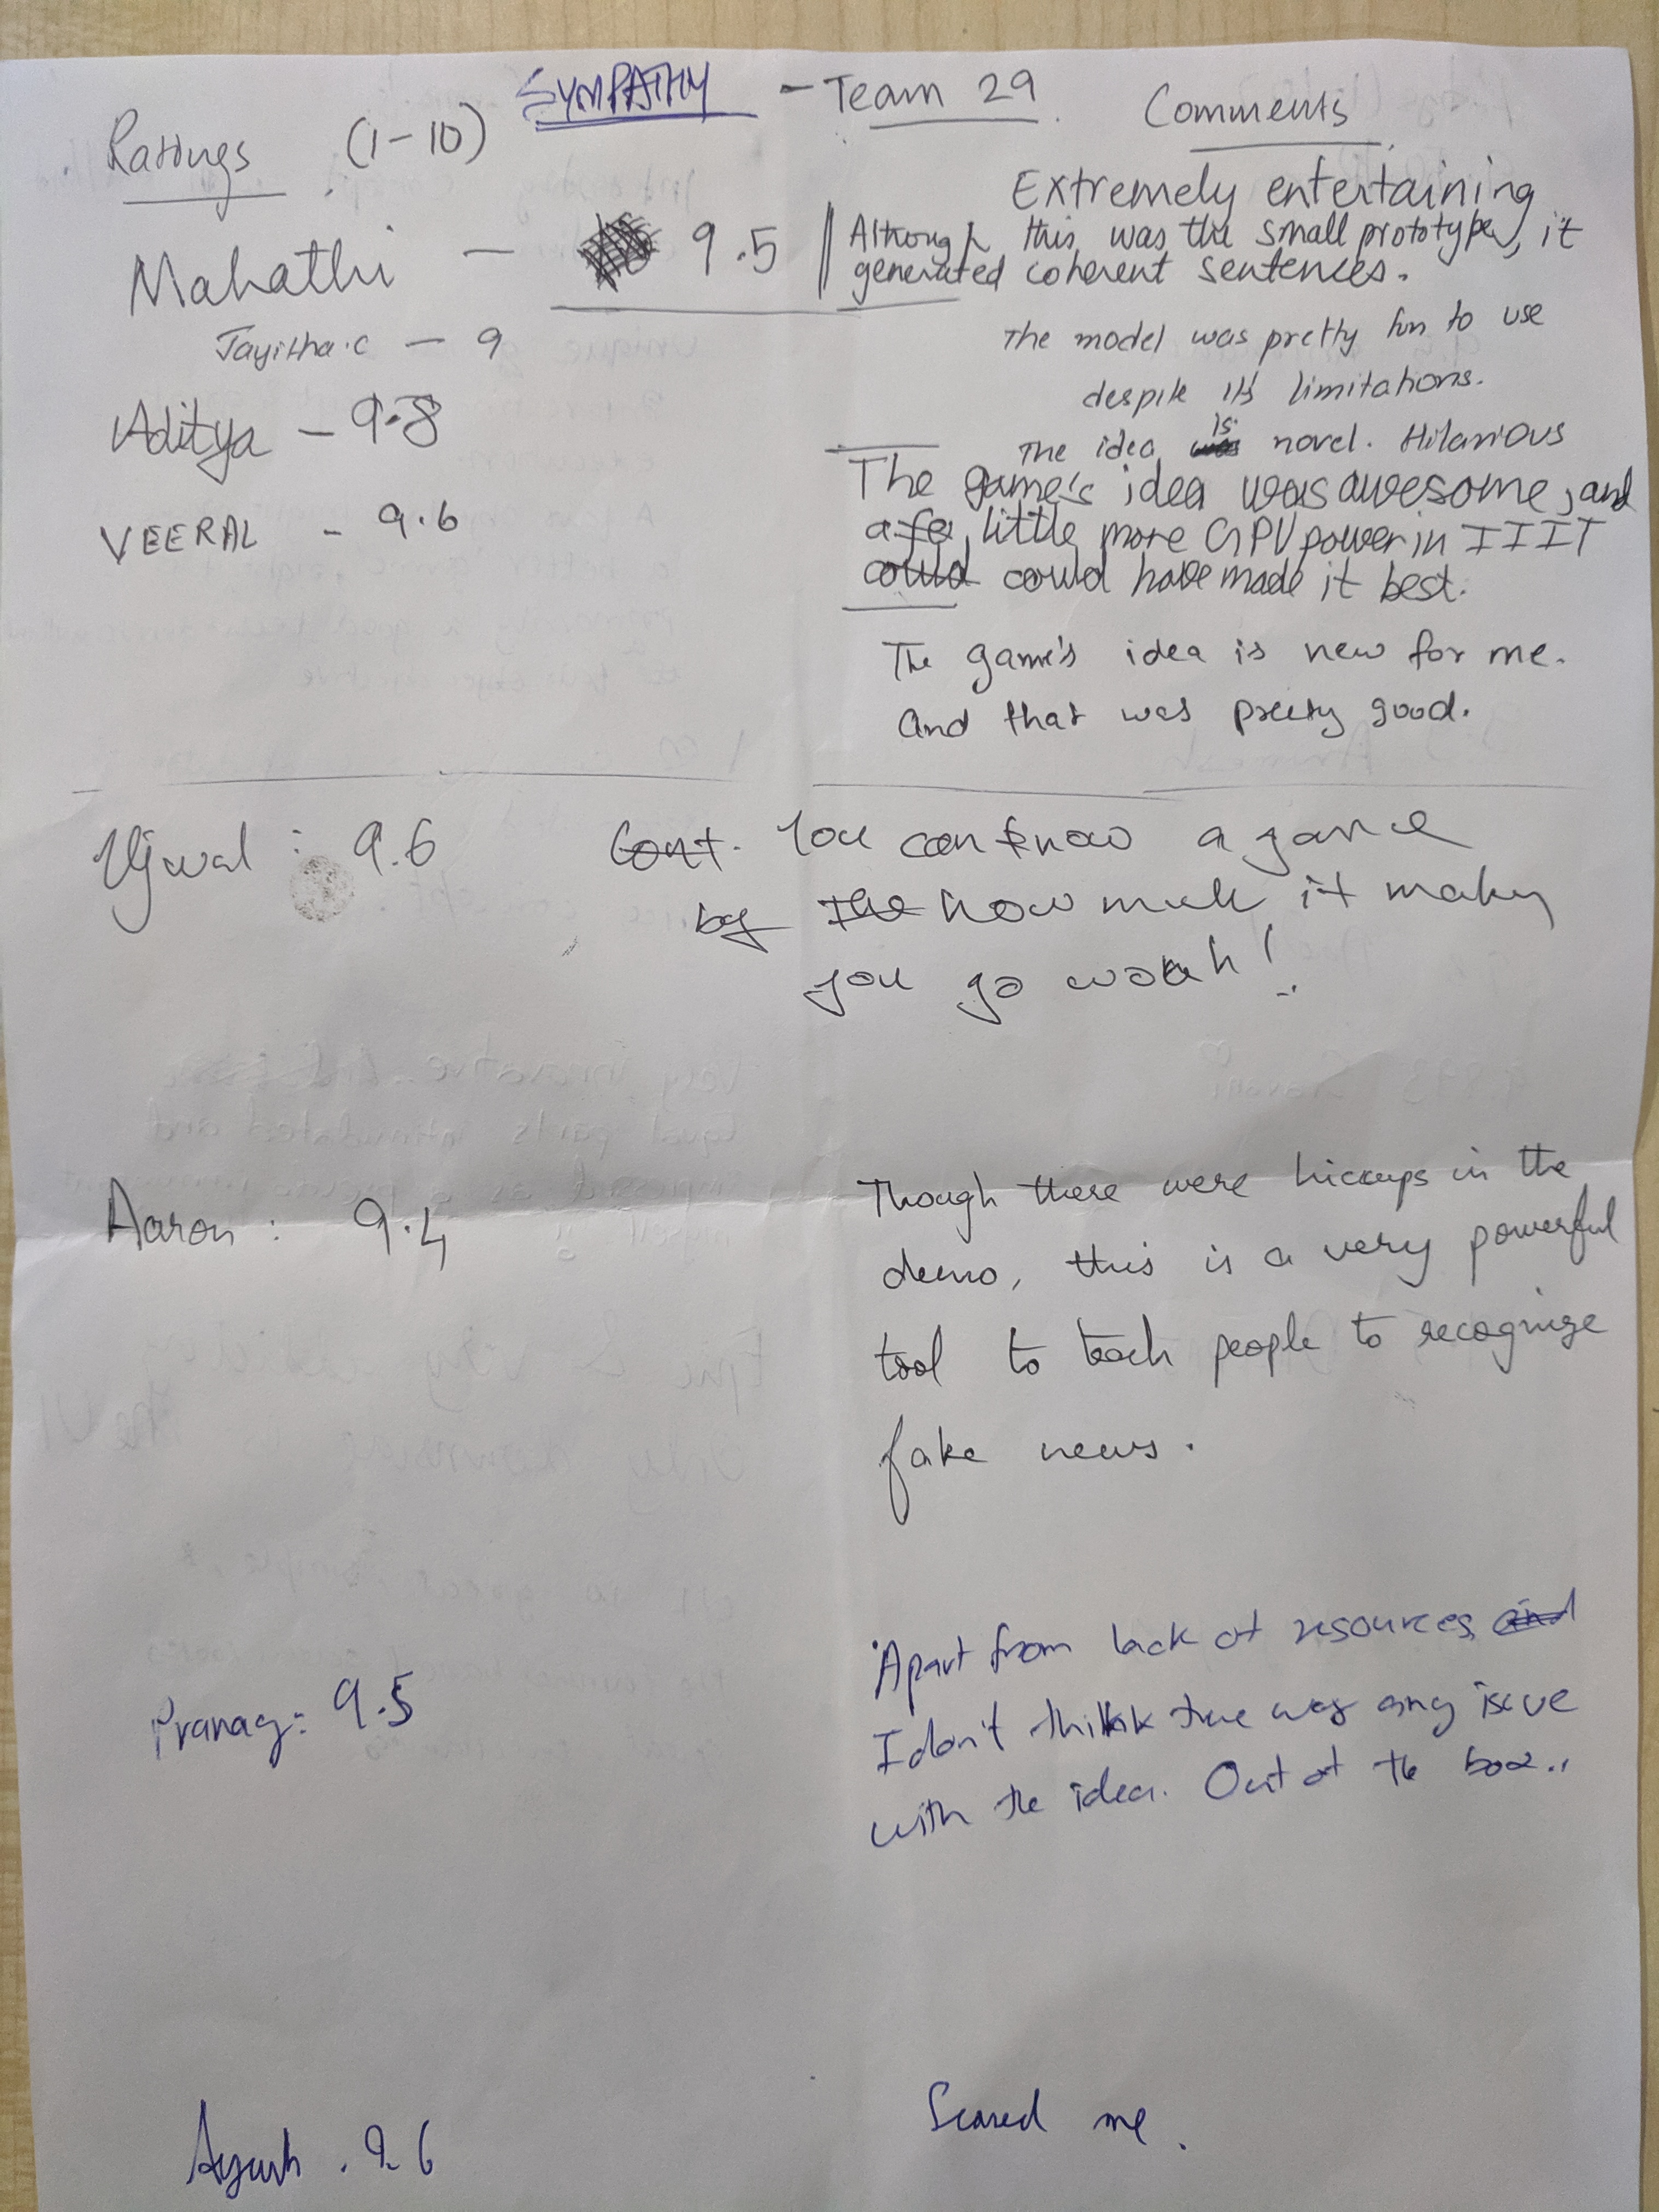 SYMPATHY - Team 29
Ratings (1-10)
Comments
Mahathi - 9.5
Extremely entertaining
Although this was the small prototype, it
generated coherent sentences.
Jayitha.C - 9
The model was pretty fun to use
despite its limitations.
The idea is novel. Hilarious
Aditya - 9.8
The game's idea was awesome, and
a little more GPU power in IIIT
could have made it best.
VEERAL - 9.6
The game's idea is new for me.
And that was pretty good.
Ujwal : 9.6
You can know a game
by how much it makes
you go woah!
Aaron : 9.4
Though there were hiccups in the
demo, this is a very powerful
tool to teach people to recognize
fake news.
Pranav: 9.5
Apart from lack of resources
I don't think there was any issue
with the idea. Out of the box..
Ayush . 9.6
Scared me.